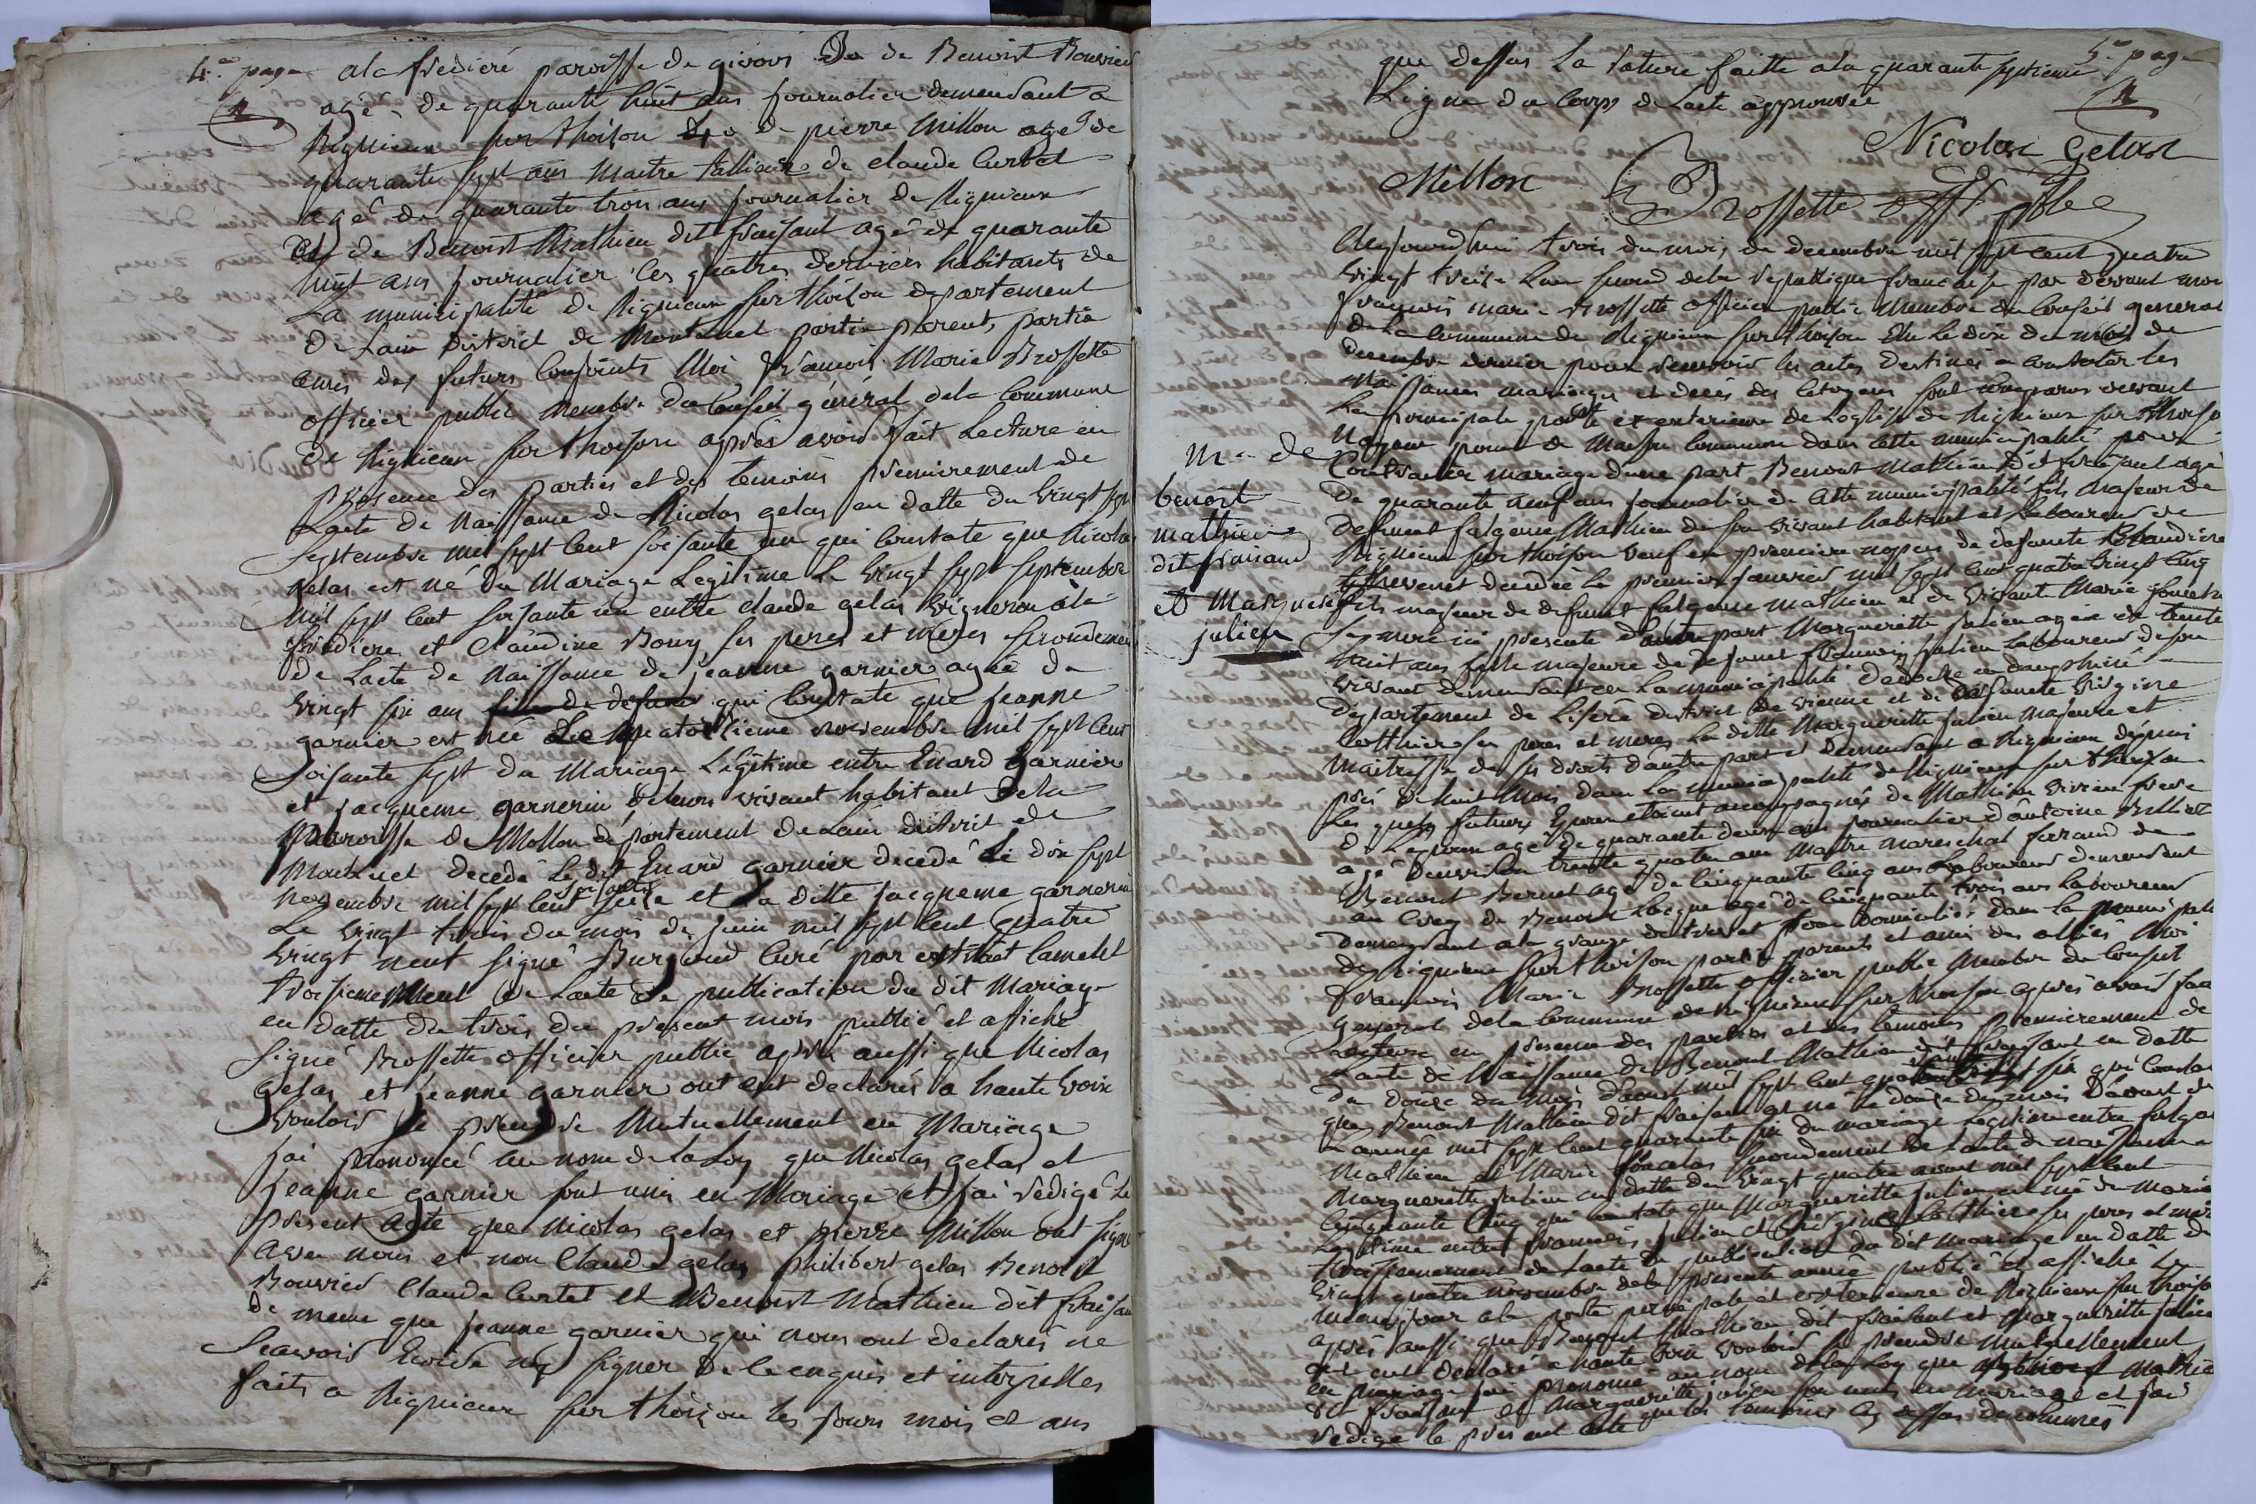 4e page
a la fredieré paroisse de givors De de Benoist Bouvier
agé de quarante huit ans journalier demeurant a
Rignieux sur thoison de pierre Millon agé de
quarante sept ans Maitre tallieur de claude Curtet
agé de quarante trois ans journalier de Rignieux
et de Benoist Mathieu dit fraisant agé de quarante
huit ans journalier les quatres derniers habitants de
La municipalité de Rignieux sur thoison departement
De Lain district de Montluel partie parents, partie
amis des futurs Conjoints Moi francois Marie Brossette
officier public membre du Conseil général dela Commune
de Rignieux sur thoison après avoir fait Lecture en
presence des parties et des temoins premierement de
Lacte de Naissance de Nicolas gelas en datte du vingt sept
Septembre mil sept cent soisante un qui Constate que Nicolas
gelas est né du Mariage Legitime le vingt sept septembre
mil sept cent soisante un entre claude gelas vigneron a la
frediere et Claudine Bony ses peres et meres secondement
de Lacte de Naissance de jeanne garnier agée de
vingt six ans fille de defunt qui Constate que jeanne
garnier est née Le quatorzieme novembre mil sept cent
Soisante sept du Mariage Legitime entre Enard garnier
et jacqueme garnerin de leurs vivant habitant dela
Parroisse de Mollon département de Lain district de
Montluel decedé Le dit Enard garnier decedé Le dix sept
novembre mil sept cent soisante seize et La ditte jacqueme garnerin
Le vingt trois du mois de juin mil sept cent quatre
vingt neuf signé Burgaud Curé par extrait
troisiemement de Lacte de publication du dit Mariage
en datte du trois du présent mois publié et affiché
Signé Brossette officier public après aussi que Nicolas
gelas et jeanne garnier ont eut declarés a haute voix
vouloir se prendre Mutuellement en Mariage
jai prononcé au nom de la Loy que Nicolas gelas et
jeanne garnier sont unis en Mariage et jai redigé Le
present acte que Nicolas gelas et pierre Millon ont signé
avec nous et non Claude gelas philibert gelas Benoist
Bouvier Claude Curtet et Benoist Mathieu dit fraisant
de meme que jeanne garnier qui nous ont declarés ne
Scavoir Ecrire ny signer de ce enquis et interpelles
faits a Rignieux sur thoison les jours mois et ans
5e page
que dessus La rature faitte a la quarante septieme
Ligne du Corps de Lacte approuvée
Nicolas Gelas
Millon
Brossette off. pble
m.. de
benoit
mathieu
dit fraisand
et Marguerite
julien
Aujourdhuy trois du mois de decembre mil sept cent quatre
vingt treize Lan second dela republique francaise par devant moi
francois marie Brossette officier public Membre du Conseil general
de La Commune de Rignieux sur thoison Elu Le dix du mois de
decembre dernier pour recevoir les actes destines a Constater les
Naissances mariages et decès des Citoyens sont comparus devant
La principale porte exterieure de Leglise de Rignieux sur thoison
Nayant point de Maison Commune dans cette municipalité pour
Contracter mariage dune part Benoist Mathieu dit fraisant agé
De quarante neuf ans journalier de cette municipalité fils majeur de
defunt falgeme Mathieu de son vivant habitant et Laboureur de
Rignieux sur thoison veuf en premiere nopces de defunte Claudine
Thevenet decedée le premier janvier mil sept cent quatre vingt cinq
fils majeur de defunt falgeme mathieu et de vivante Marie
Sa mere ici presente dautre part Marguerette julien agée de trente
huit ans fille majeure de defunt francois julien Laboureur de son
vivant demeurant en La municipalité en dauphiné
Departement de Lisere district de vienne et de defunte virginie
Cotthier ses peres et meres La ditte Marguerette julien Majeure et
Maitresse de ses droits dautre part et demeurant a Rignieux depuis
près de huit mois dans La municipalité de Rignieux sur thoison
Les quels futurs Epoux etoient accompagnés de Mathieu
agé de quarante deux ans journalier dantoine Billiet
agé denviron trente quatre ans Maitre mareschal ferand de
Benoist Bernet agé de Cinquante Cinq ans Laboureur demeurant
de Benoist agé de Cinquante trois ans Laboureur
demeurant a la grange tous domiciliés dans La municipalité
de Rignieux sur thoison partie parents et amis des alliés Moi
francois Marie Brossette officier public Membre du Conseil
General dela Commune de Rignieux sur thoison après avoir fait
Lecture en presence des parties et des temoins premierement de
Lacte de Naissance de Benoist Mathieu dit fraisant en datte
du douze du mois daoust mil sept cent quarante six qui Constate
que Benoist Mathieu dit fraisant est né le douze du mois Daoust de
Lannée mil sept cent quarante six du mariage Legitime entre
Mathieu et Marie secondement de Lacte de naissance
Marguerette julien en datte du vingt quatre aoust mil sept cent
Cinquante Cinq qui constate que Marguerette julien est née du Mariage
Legitime entre francois julien et virginie Cotthier ses peres et meres
troisiemement de Lacte de publication du dit mariage en datte du
vingt quatre novembre dela presente année publié et affiché Le
meme jour a la porte principale et exterieure de Rignieux sur thoison
après aussi que Benoist Mathieu dit fraisant et Marguerette julien
ont eut declaré a haute voix vouloir se prendre Mutuellement
en mariage jai prononcé au nom dela Loy que Benoist Mathieu
dit fraisant et Marguerette julien sont unis en mariage et jai
redigé le present acte que les temoins cy dessus denommés